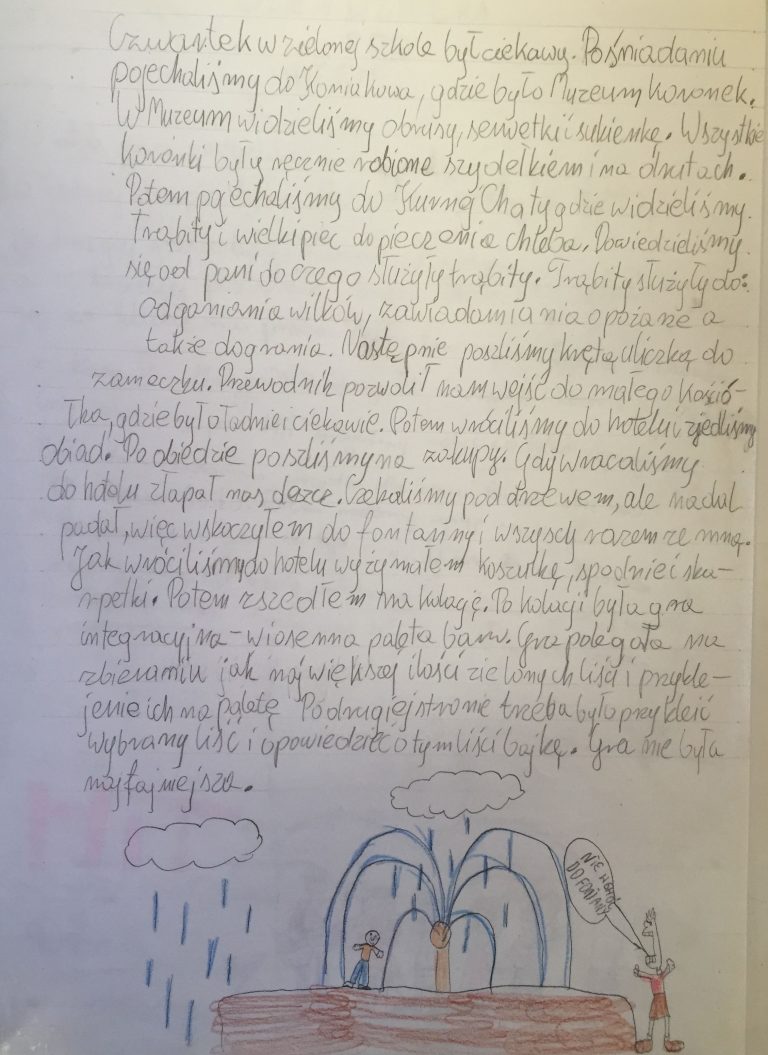 Czwartek w zielonej szkole był ciekawy. Po śniadaniu
pojechaliśmy do Koniakowa, gdzie było Muzeum koronek.
W Muzeum widzieliśmy obrusy, serwetki i sukienkę. Wszystkie
koronki były ręcznie robione szydełkiem i na drutach.
Potem pojechaliśmy do Kurnej Chaty gdzie widzieliśmy
Trąbity i wielki piec do pieczenia chleba. Dowiedzieliśmy
się od pani do czego służyły trąbity. Trąbity służyły do:
odganiania wilków, zawiadamiania o pożarze a
także do grania. Następnie poszliśmy krętą uliczką do
zameczku. Przewodnik pozwolił nam wejść do małego kośció-
łka, gdzie było ładnie i ciekawie. Potem wróciliśmy do hotelu i zjedliśmy
obiad. Po obiedzie poszliśmy na zakupy. Gdy wracaliśmy
do hotelu złapał nas deszcz. Czekaliśmy pod drzewem, ale nadal
padał, więc wskoczyłem do fontanny i wszyscy razem ze mną.
Jak wróciliśmy do hotelu wyżymałem koszulkę, spodnie i ska-
rpetki. Potem zszedłem na kolację. Po kolacji była gra
integracyjna - wiosenna paleta barw. Gra polegała na
zbieraniu jak największej ilości zielonych liści i przykle-
jenie ich na paletę Po drugiej stronie trzeba było przykleić
wybrany liść i opowiedzieć o tym liści bajkę. Gra nie była
najfajniejsza.
NIE
DO FONTANNY